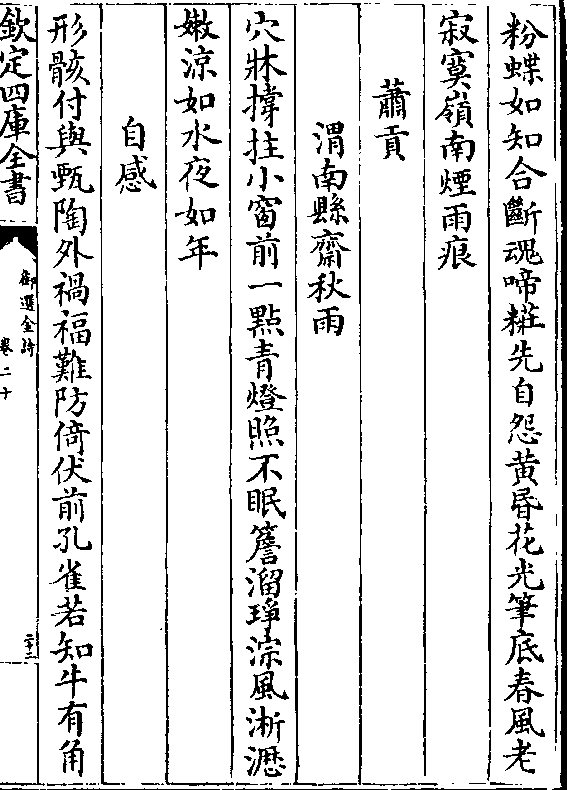 粉蝶如知合斷魂啼粧先自怨黄昏花光筆底春風老
寂寞嶺南煙雨痕
蕭貢
渭南縣齋秋雨
穴牀撐拄小窗前一點青燈照不眠簷溜琤淙風淅瀝
嫩涼如水夜如年
自感
形骸付與甄陶外禍福難防倚伏前孔雀若知牛有角
欽定四庫全書
御選金詩
卷二十
二十二